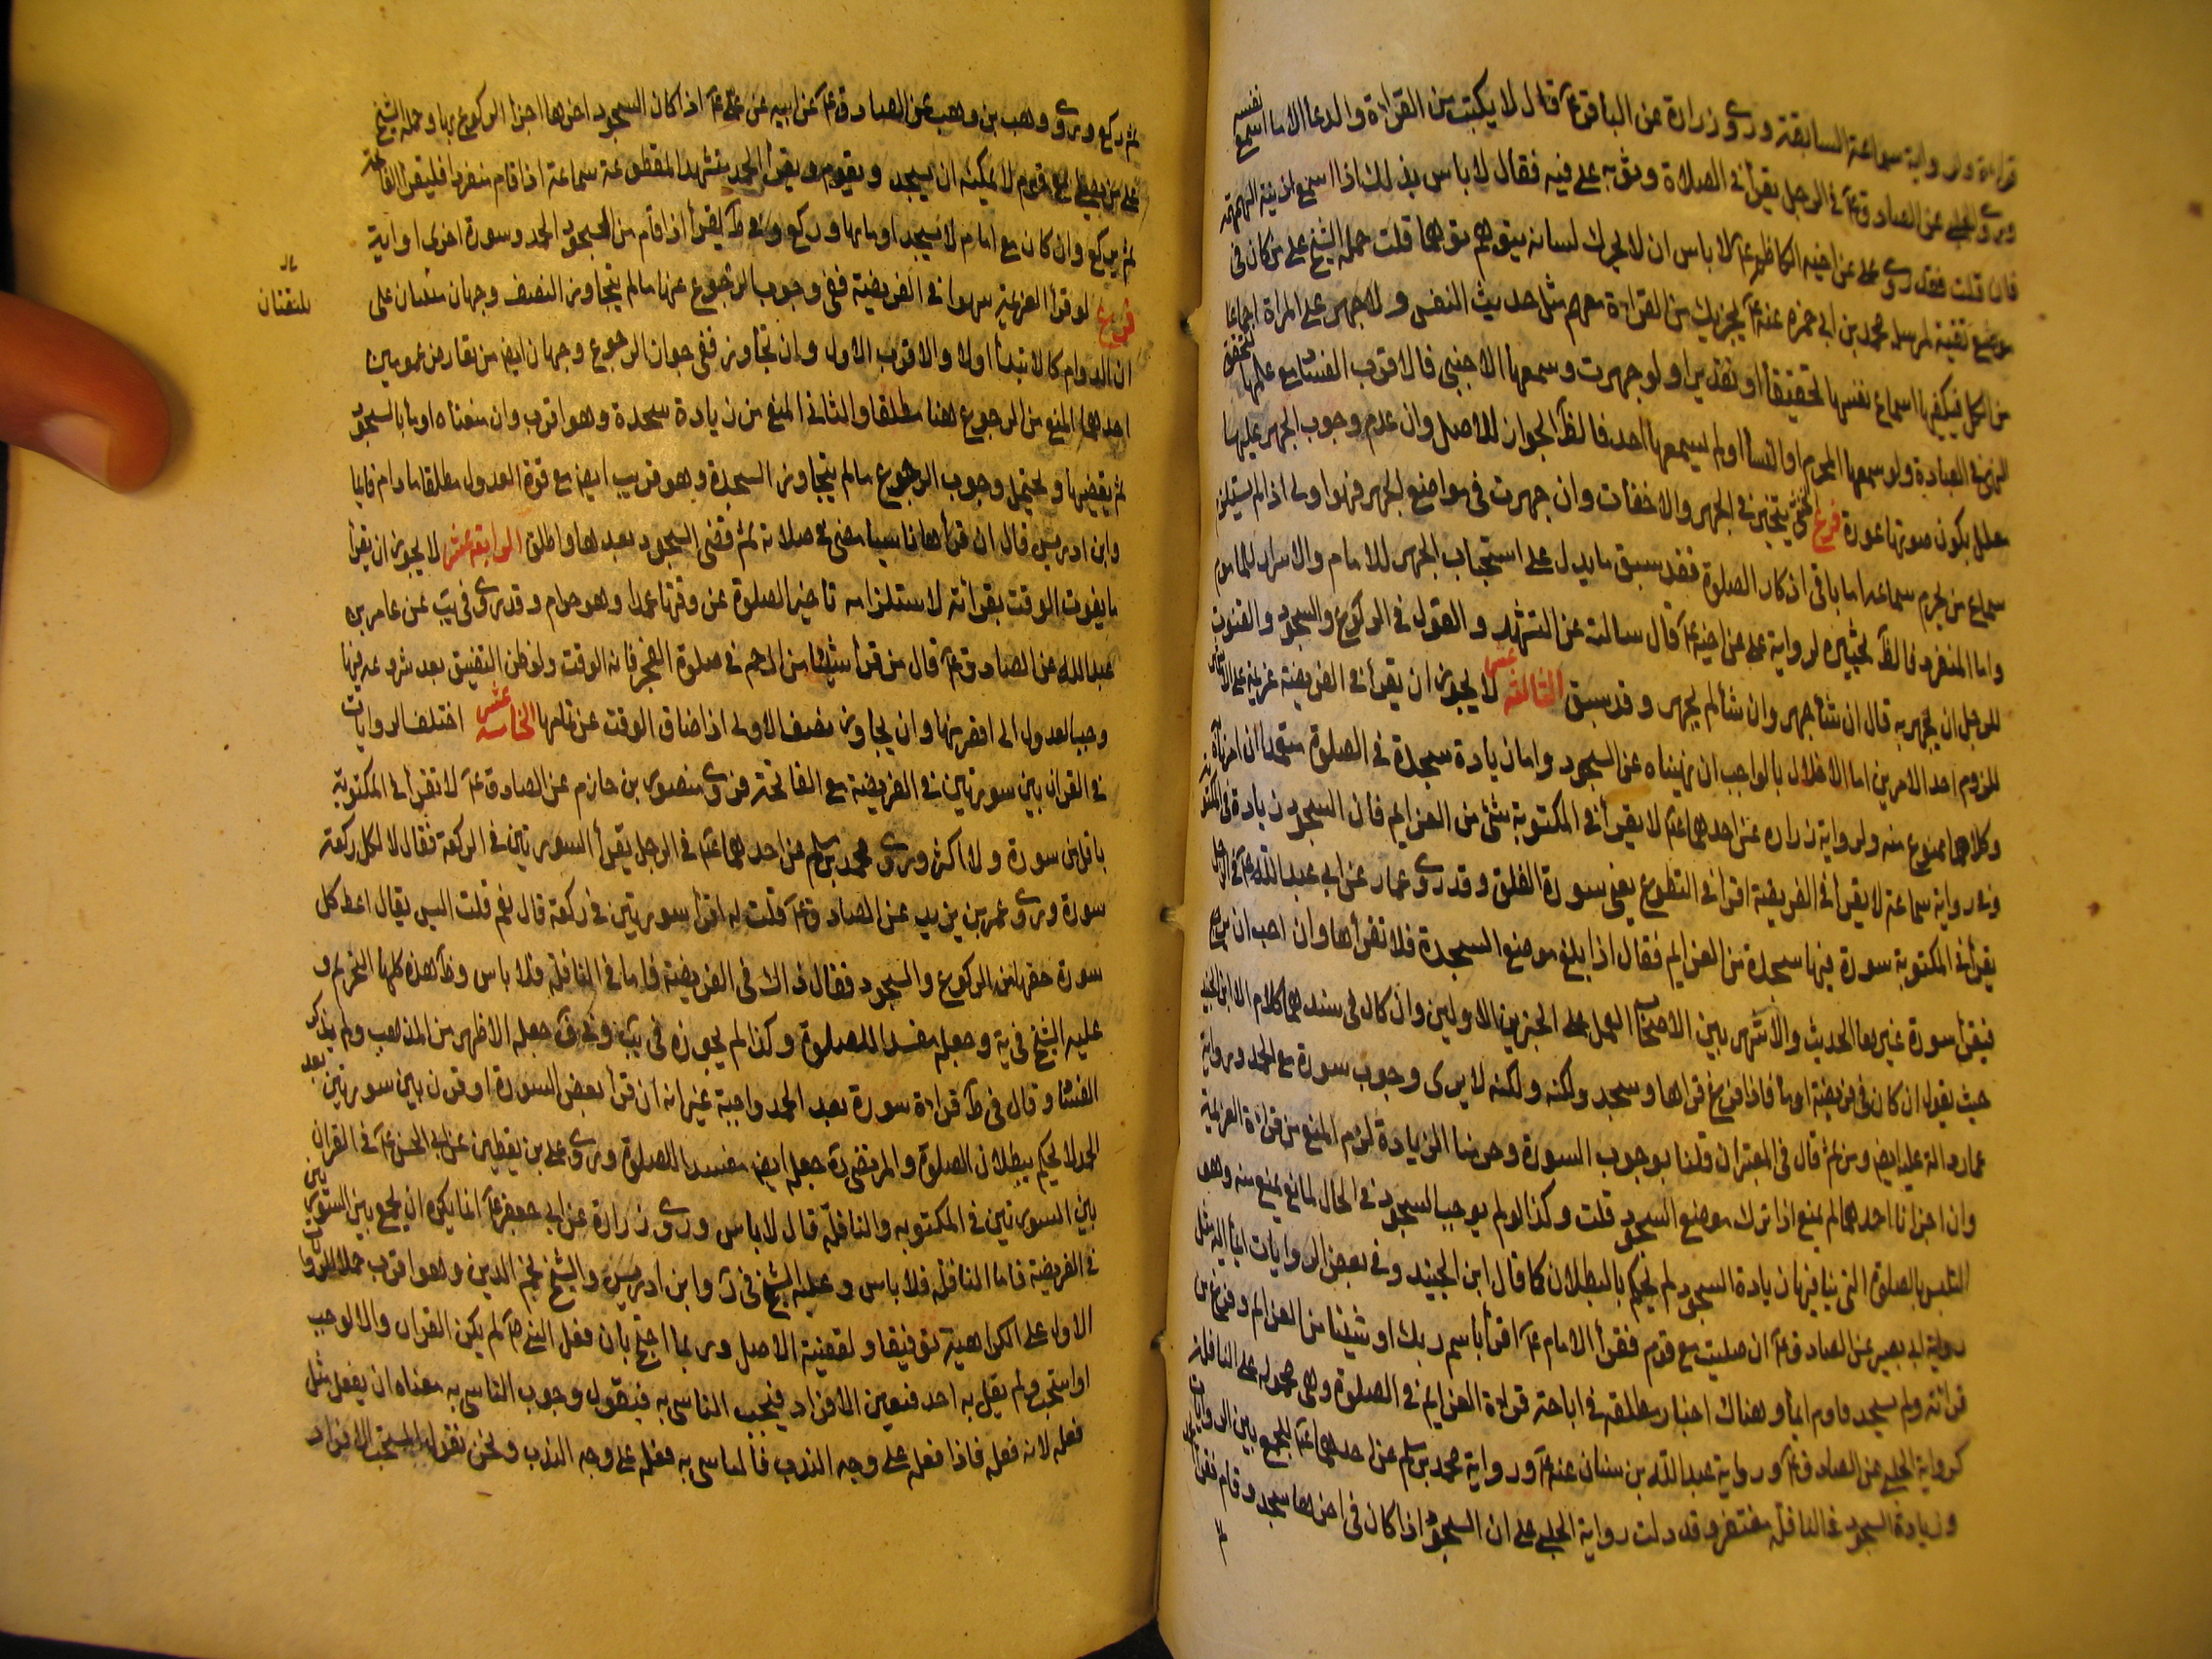 قراءة ولرواية سماعة السابقة وروى زرارة عن الباقر عـ قال لا يكتب من القراءة والدعاء الا ما اسمع نفسه
وروى الحلبي عن الصادق عـ في الرجل يقرأ في الصلاة وثوبه على فيه فقال لا باس بذلك اذا اسمع اذنيه الهمهمة
فان قلت فقد روى علي عن اخيه الكاظم عـ لا باس ان لا يحرك لسانه يتوهم توهما قلت حمله الشيخ على من كان في
موضع تقية لمرسل محمد بن ابي حمزه عنه عـ يجزيك من القراءة معهم مثل حديث النفس ولا جهر على المراة اجماعا
من الكل فيكفيها اسماع نفسها تحقيقا او تقديرا ولو جهرت وسمعها الاجنبي فالاقرب الفساد مع علمها لتحقق
النهي في العبادة ولو سمعها المحرم او النسأ او لم يسمعها احد فالظ الجواز للاصل وان عدم وجوب الجهر عليها
معلل بكون صوتها عورة فرع الخنثى يتخير في الجهر والاخفات وان جهرت في مواضع الجهر فهو اولى اذا لم يستلزم
سماع من يحرم سماعه اما باقي اذكار الصلوة فقد سبق ما يدل على استحباب الجهر للامام والاسرار للماموم
واما المنفرد فالظ تخييره لرواية علي عن اخيه عـ قال سالته عن التشهد والقول في الركوع والسجود والقنوت
للرجل ان يجهر به قال ان شأ جهر وان شأ لم يجهر وقد سبق الثالثة عشر لا يجوز ان يقرأ في الفريضة عزيمة على الاشهر
للزوم احد الامرين اما الاخلال بالواجب ان نهيناه عن السجود واما زيادة سجدة في الصلوة متعمدا ان امرناه به
وكلاهما ممنوع منه ولرواية زراره عن احدهما عـ لا يقرأ في المكتوبة بشئ من العزايم فان السجود زيادة في المكتوبة
وفي رواية سماعة لا يقرأ في الفريضة اقرأ في التطوع يعني سورة الفلق وقد روى عمار عن ابي عبد الله عـ في الرجل
يقرأ في المكتوبة سورة فيها سجدة من العزايم فقال اذا بلغ موضع السجدة فلا تقرأها وان احب ان يرجع
فيقرأ سورة غيرها الحديث والاشهر بين الاصحاب العمل على الخبرين الاولين وان كان في سندهما كلام الا ابن الجنيد
حيث يقول ان كان في فريضة اومأ فاذا فرغ قراها وسجد ولكنه ولكنه لا يرى وجوب سورة مع الحمد ورواية
عمار دالة عليه ايض ومن ثم قال في المعتبر ان قلنا بوجوب السورة وحرمنا الزيادة لزم المنع من قراءة العزيمة
وان اجزنا احدهما لم يمنع اذا ترك موضع السجود قلت وكذا لو لم يوجب السجود في الحال لمانع يمنع منه وهو
التلبس بالصلوة التي ينافيها زيادة السجود لم يحكم بالبطلان كما قال ابن الجنيد وفي بعض الروايات ايمأ اليه مثل
رواية ابي بصير عن الصادق عـ ان صليت مع قوم فقرأ الامام عـ اقرأ باسم ربك او شيئا من العزايم وفرغ من
قراءته ولم يسجد فاوم ايمأ وهناك اخبار مطلقه في اباحة قراءة العزايم في الصلوة وهي محمولة على النافلة
كرواية الحلبي عن الصادق عـ ورواية عبد الله بن سنان عنه عـ ورواية محمد بن مسلم عن احدهما عـ للجمع بين الروايات
وزيادة السجود في النافلة مغتفر وقد دلت رواية الحلبي على ان السجود اذا كان في اخرها سجد وقام فقرأ الحمد
ثم ركع وروى وهب بن وهب عن الصادق عـ عن ابيه عن علي عـ اذا كان السجود اخرها اجزأ الركوع بها وحمله الشيخ
على من يصلي مع قوم لا يمكنه ان يسجد ويقوم ويقرأ الحمد مستشهدا لمقطوعة سماعة اذا قام منفردا فليقرأ الفاتحة
ثم يركع وان كان مع امام لا يسجد اوما بها وركع وفي ط يقرأ اذا قام من السجود الحمد وسورة اخرى او اية
فروع لو قرأ العزيمة سهوا في الفريضة ففي وجوب الرجوع عنها ما لم يتجاوز النصف وجهان مبنيان على
ان الدوام كالابتدأ اولا والاقرب الاول وان تجاوز ففي جواز الرجوع وجهان ايض من تعارض عمومين
احدهما المنع من الرجوع هنا مطلقا والثاني المنع من زيادة سجدة وهو اقرب وان منعناه اومأ بالسجود
ثم يقضيها ويحتمل وجوب الرجوع ما لم يتجاوز السجدة وهو قريب ايض مع قوة العدول مطلقا ما دام قايما
وابن ادريس قال ان قرأها ناسيا مضى في صلاته ثم قضى السجود بعدها واطلق الرابعة عشر لا يجوز ان يقرأ
ما يفوت الوقت بقراءته لاستلزامه تاخير الصلوة عن وقتها عمدا وهو حرام وقد روى في يب عن عامر بن
عبد الله عن الصادق عـ قال من قرأ شيئا من ال حم في صلوة الفجر فاته الوقت ولو ظن التضيق بعد شروعه فيها
وجب العدول الى اقصر منها وان تجاوز نصف الاولى اذا ضاق الوقت عن تمامها الخامسة عشر اختلف الروايات
في القران بين سورتين في الفريضة مع الفاتحة فروى منصور بن حازم عن الصادق عـ لا تقرأ في المكتوبة
باقل من سورة ولا اكثر وروى محمد بن مسلم عن احدهما عـ في الرجل يقرأ السورتين في الركعة فقال لا لكل ركعة
سورة وروى عمر بن يزيد عن الصادق عـ قلت له اقرأ سورتين في ركعة قال نعم قلت اليس يقال اعط كل
سورة حقها من الركوع والسجود فقال ذاك في الفريضة فاما في النافلة فلا باس وظ هذه كلها التحريم و
عليه الشيخ في ية وجعله مفسدا للصلوة وكذا لم يجوزه في يب وفي ف جعله الاظهر من المذهب ولم يذكر
الفساد وقال في ط قراءة سورة بعد الحمد واجبة غير انه ان قرأ بعض السورة او قرن بين سورتين بعد
الحمد لا يحكم ببطلان الصلوة والمرتضى ره جعله ايض مفسدا للصلوة وروى علي بن يقطين عن ابي الحسن عـ في القران
بين السورتين في المكتوبه والنافلة قال لا باس وروى زرارة عن ابي جعفر عـ انما يكره ان يجمع بين السورتين
في الفريضة فاما النافلة فلا باس وعليه الشيخ في ر وابن ادريس والشيخ نجم الدين وهو اقرب حملا للروايات
الاول على الكراهية توفيقا ولقضية الاصل وربما احتج بان فعل النبي ص لم يكن القران والا لوجب
او استحب ولم يقل به احد فتعين الافراد فيجب التاسي به فنقول وجوب التاسي به معناه ان يفعل مثل
فعله لانه فعله فاذا فعله على وجه الندب فالتاسي به فعله على وجه الندب ونحن نقول باستحباب الافراد